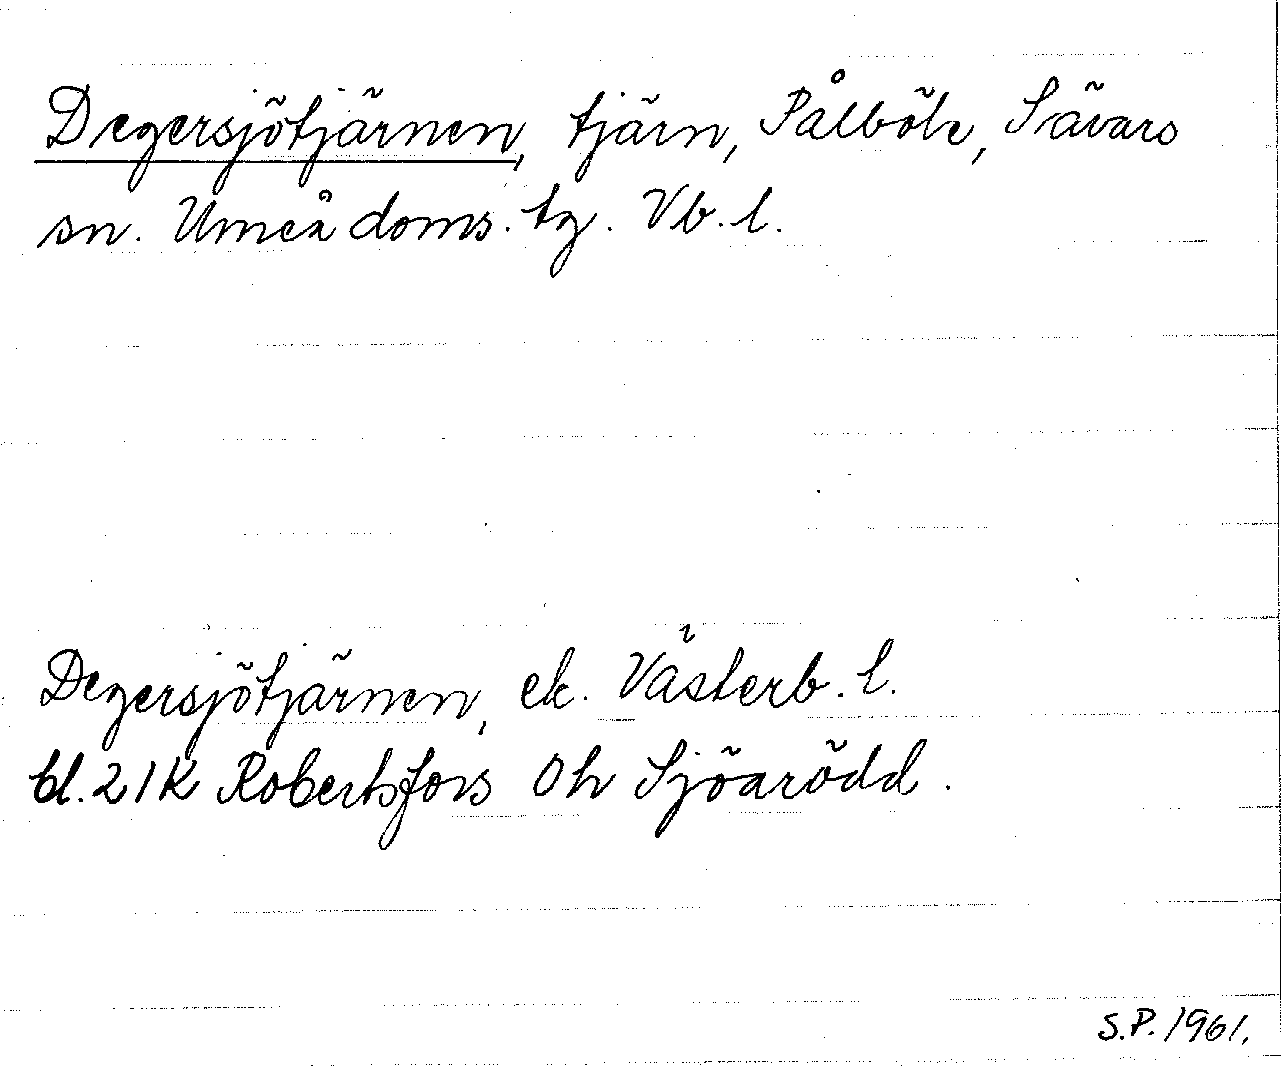 Degersjötjärnen, tjärn, Pålböle, Sävars
sn. Umeå doms. tg. Vb. l.
Degersjötjärnen, ek. Västerb. l.
bl. 21K Robertsfors Oh Sjöarödd.
S.P. 1961.